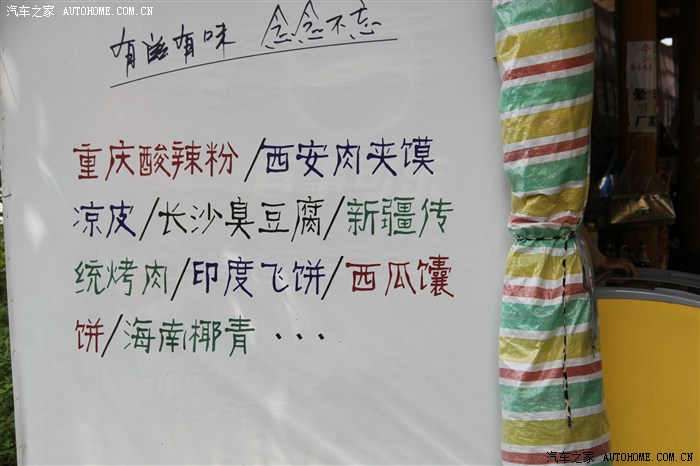 汽车之家 AUTOHOME.COM.CN
有滋有味 念念不忘
重庆酸辣粉/西安肉夹馍
凉皮/长沙臭豆腐/新疆传
统烤肉/印度飞饼/西瓜馕
饼/海南椰青 ···
今
厂家
汽车之家 AUTOHOME.COM.CN